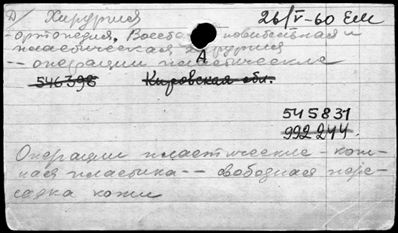 Д/ Хирургия 26/V-60 Ем
- ортопедия, Восстановительная и
пластическая хирургия
-- операции пластические
А
546398 Кировская обл.
545831
992244.
Операции пластические - кож-
ная пластика -- свободная пере-
садка кожи